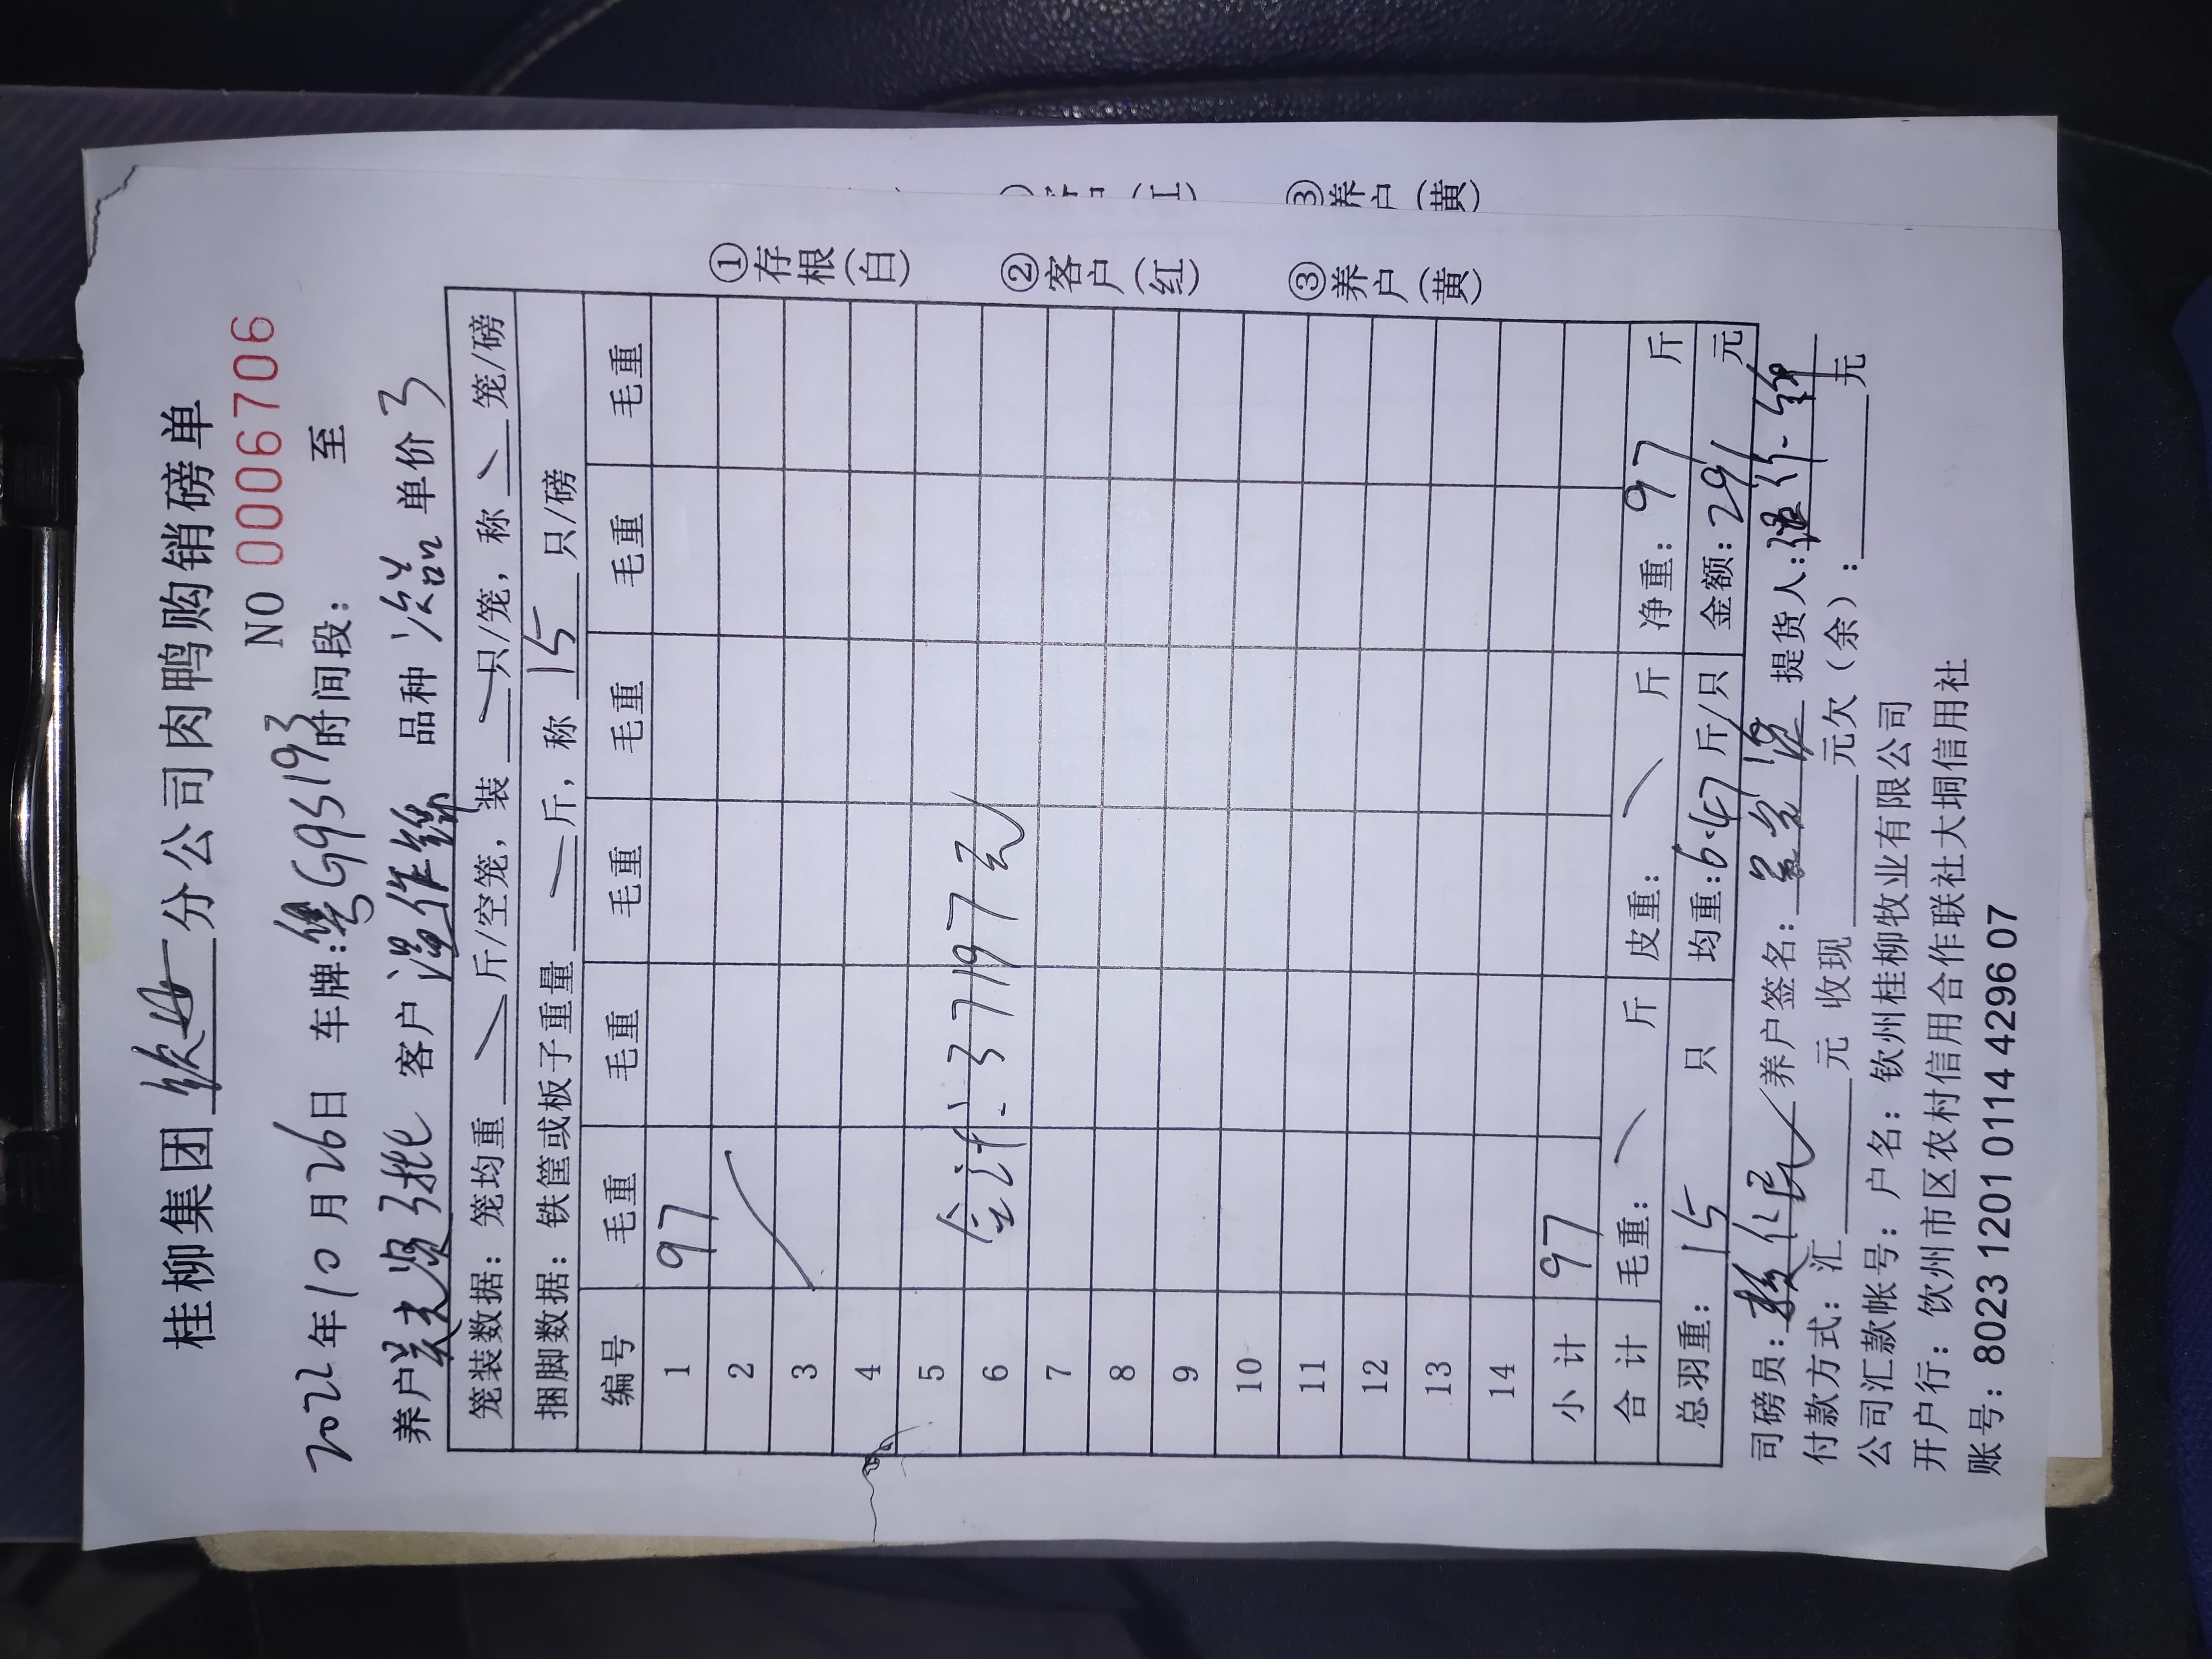 桂柳集团 分公司肉鸭购销磅单
NO 0006706
2022年10月26日 车牌:粤G9S193 时间段: 至
养户 客户 温作锦 品种 次品 单价 3
笼装数据:笼均重 斤/空笼,装 只/笼,称 笼/磅
捆脚数据:铁筐或板子重量 斤,称 15 只/磅
编号 毛重 毛重 毛重 毛重 毛重 毛重
1 97
2
3
4
5
6 合计:37197元
7
8
9
10
11
12
13
14
小计 97
合计 毛重: 斤 皮重: 斤 净重:97 斤
总羽重:15 只 均重:6.47 斤/只 金额:291 元
司磅员: 养户签名: 提货人:温作锦
付款方式:汇 元 收现 元欠(余): 元
公司汇款帐号:户名:钦州桂柳牧业有限公司
开户行:饮州市区农村信用合作联社大垌信用社
账号:8023 1201 0114 4296 07
①存根(白)
②客户(红)
③养户(黄)
③养户(黄)